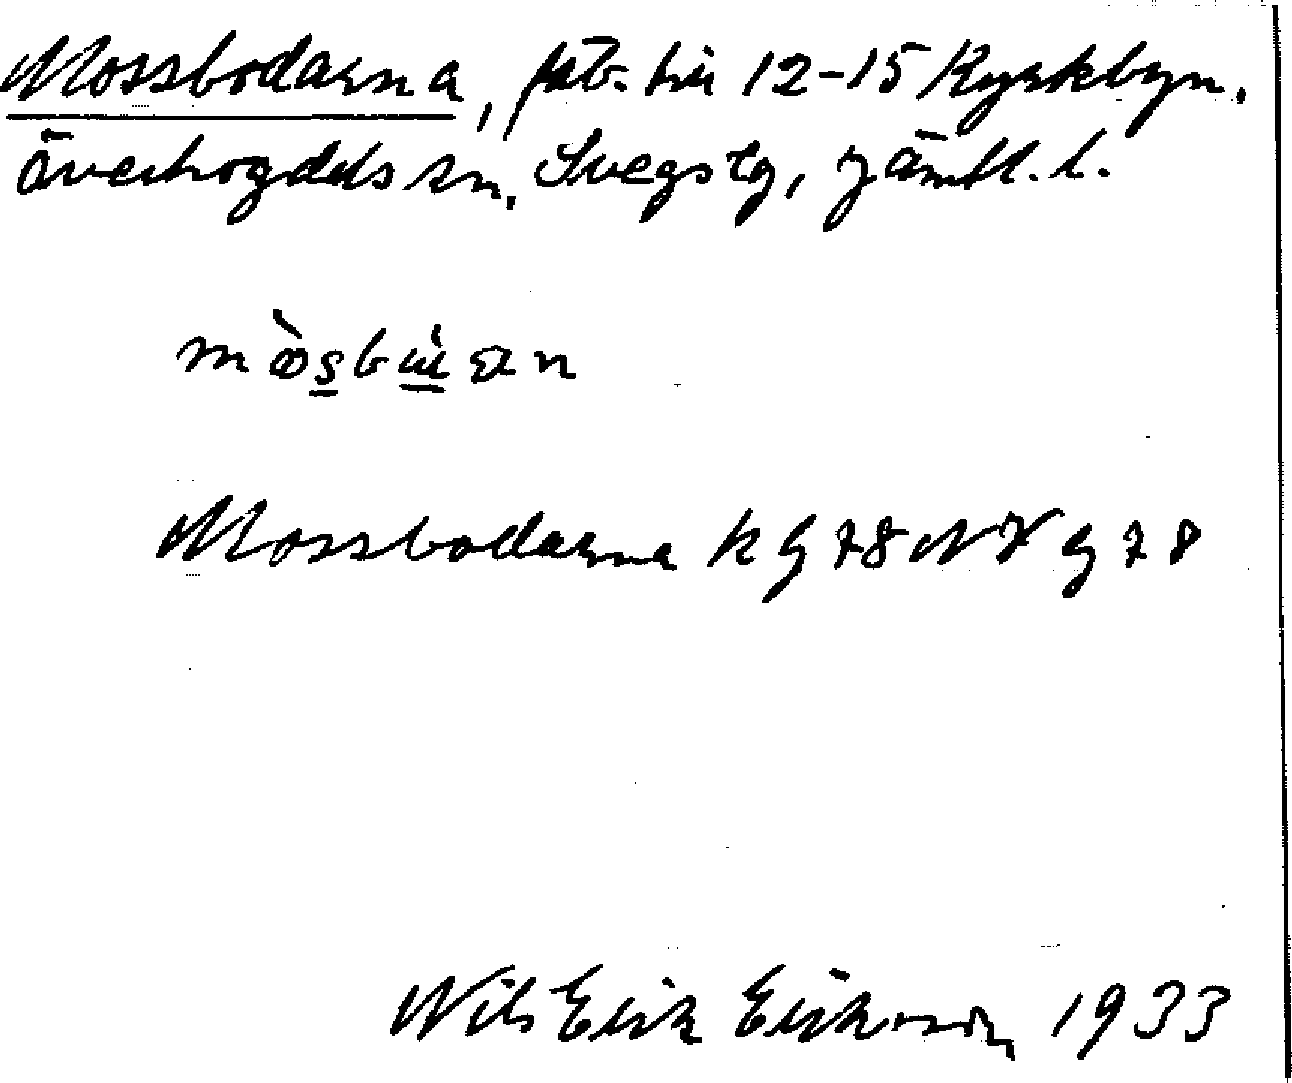 Mossbodarna, fäb. till 12-15 Kyrkbyn,
Överhogdals sn, Svegs tg, Jämtl. l.
Mossbodarna k G 78 NV g 78
Nils Erik Eriksson 1933